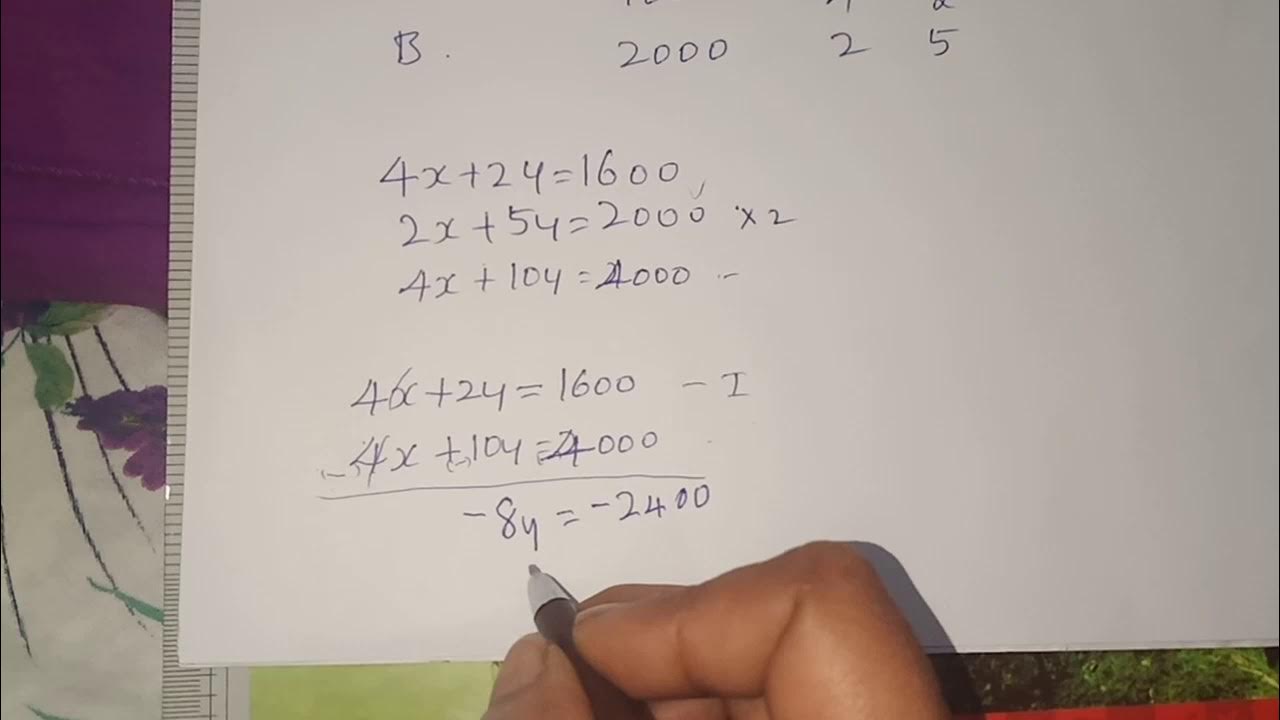 B. 2000 2 5
4x+2y=1600
2x+5y=2000 ×2
4x+10y=4000 -
4x+2y=1600 - I
4x+10y=4000
-8y=-2400